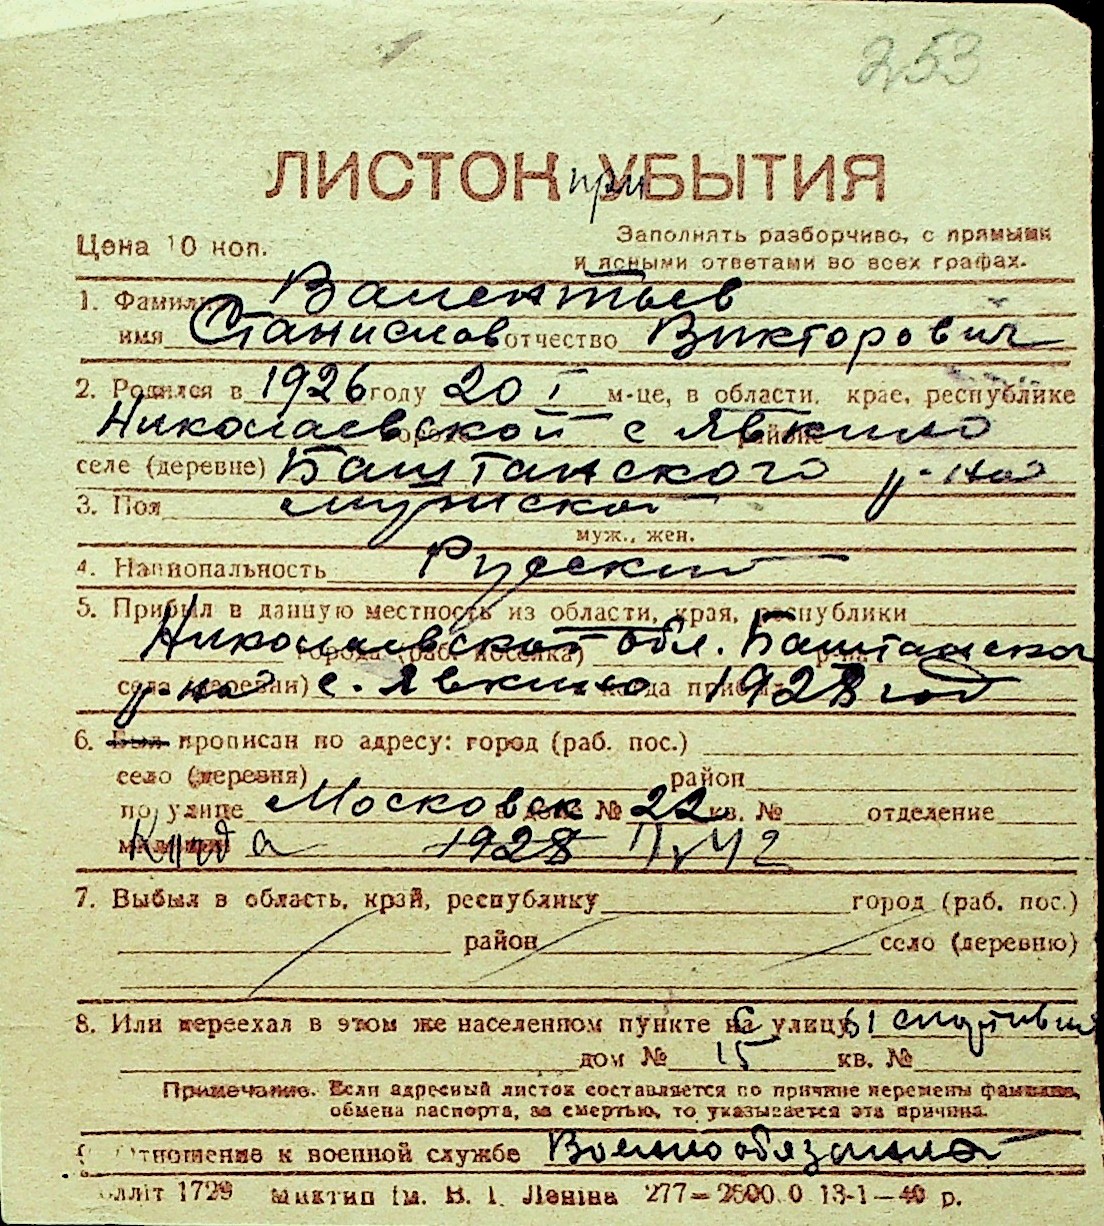 253
ЛИСТОК при УБЫТИЯ
Цена 10 коп.
Заполнять разборчиво, с прямыми
и ясными ответами во всех графах.
1. Фамилия Валентьев
имя Станислав отчество Викторович
2. Родился в 1926 году 20 I м-це, в области, крае, республике
Николаевской с Явкино
селе (деревне) Баштанского р-на
3. Пол мужской
муж., жен.
4. Национальность Русский
5. Прибыл в данную местность из области, края, республики
Николаевской обл. Баштанского
города (раб. поселка)
р-на с. Явкино 1928 год
села (деревни) когда прибыл
6. Был прописан по адресу: город (раб. пос.)
село (деревня) район
по улице Московск в доме № 22 кв. № отделение
милиции Когда 1928
7. Выбыл в область, край, республику город (раб. пос.)
район село (деревню)
8. Или переехал в этом же населенном пункте на улицу
дом № 15 кв. №
Примечание. Если адресный листок составляется по причине перемены фамилии,
обмена паспорта, за смертью, то указывается эта причина.
9. Отношение к военной службе Военнообязанный
лліт 1729 Миктип ім. В. І. Леніна 277—2500.0 13-1—40 р.